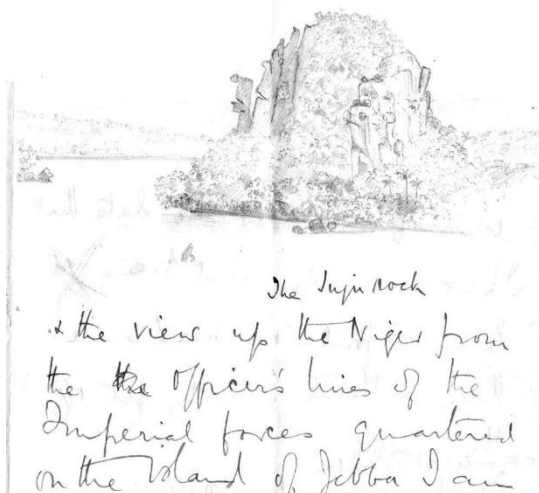 The Juju Rock
& the view up the Niger from
the the Officer's lines of the
Imperial forces quartered
on the Island of Jebba I am